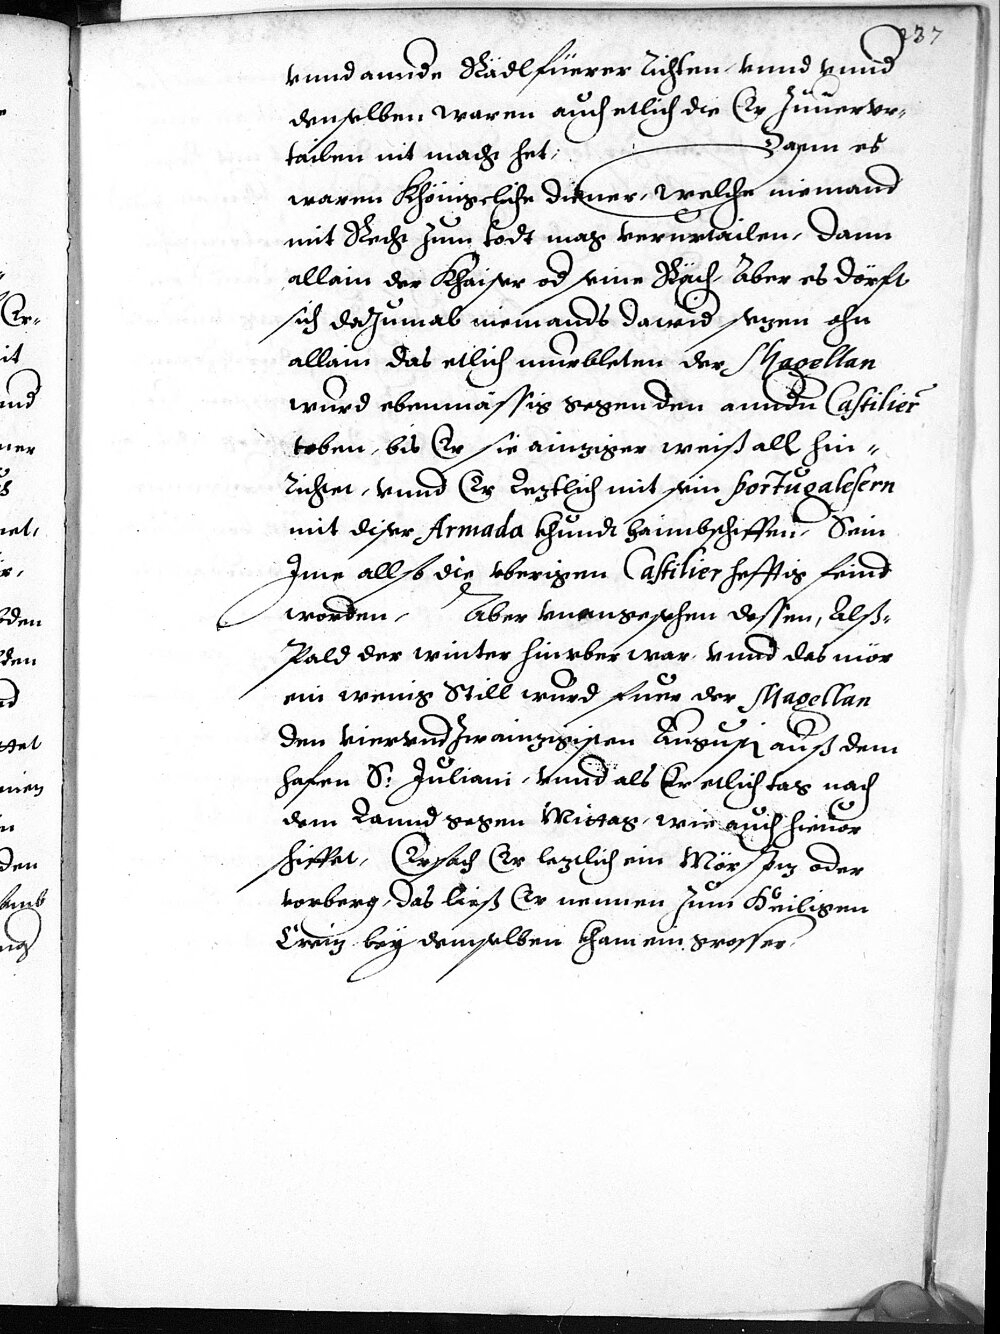 237
vnnd annde Rädlfüerer richten, vnnd vnnd
denselben waren auch etlich die Er zuuerur-
tailen nit macht het, Dann es
waren Khönigeliche diener, welche niemand
mit Recht zum todt mag verurtailen, dann
allain der Khaiser od seine Räth, Aber es dörfft
sich dazumal niemands dawid sezen ohn
allain das etlich murbleten der Magellan
wurd ebenmässig gegen den anndn Castilier
toben, bis Er sie ainziger weiß all hin-
richtet, vnnd Er leztlich mit sein Portugalesern
mit diser Armada khundt haimbschiffen, Sein
Ime allso die vberigen Castilier hefftig feind
worden, Aber vnangesehen dessen, Alß-
Pald der winter hinvber war, vnnd das mör
ein wenig Still wurd, fuer der Magellan
den viervndzwainzigisten Augusti auß dem
hafen S: Juliani, vnnd als Er etlich tag nach
dem Lannd gegen Mittag, wie auch hieuor
schiffet, Ersach Er leztlich ein Mör spiz oder
vorberg, das ließ Er nennen zum Heiligen
Creüz bey demselben kham ein grosser